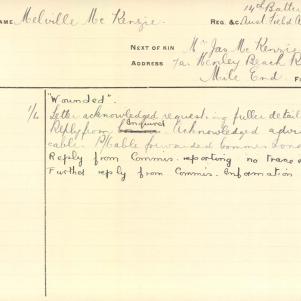 NAME Melville McKenzie. REG. &c. 14th Batte
Aust Field A
NEXT OF KIN Mr Jas McKenzie
ADDRESS 7a. Henley Beach R
Mile End.
"Wounded".
Letter acknowledged requesting fuller detail
Enquiries
Reply from Acknowledged advi
cable. P/Cable forwarded Commiss. Lond
Reply from Commis. reporting no trace o
Further reply from Commis. Information